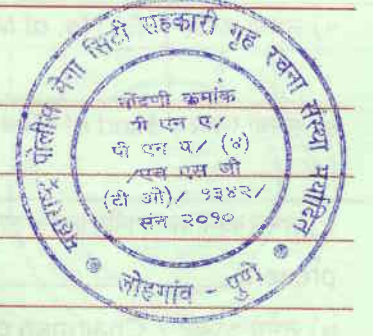 महाराष्ट्र पोलीस मेगा सिटी सहकारी गृह रचना संस्था मर्यादित
नोंदणी क्रमांक
पी एन ए/
पी एन ए/ (४)
/एच एस जी
(टी ओ)/ १३४२/
सन २०१०
लोहगांव - पुणे